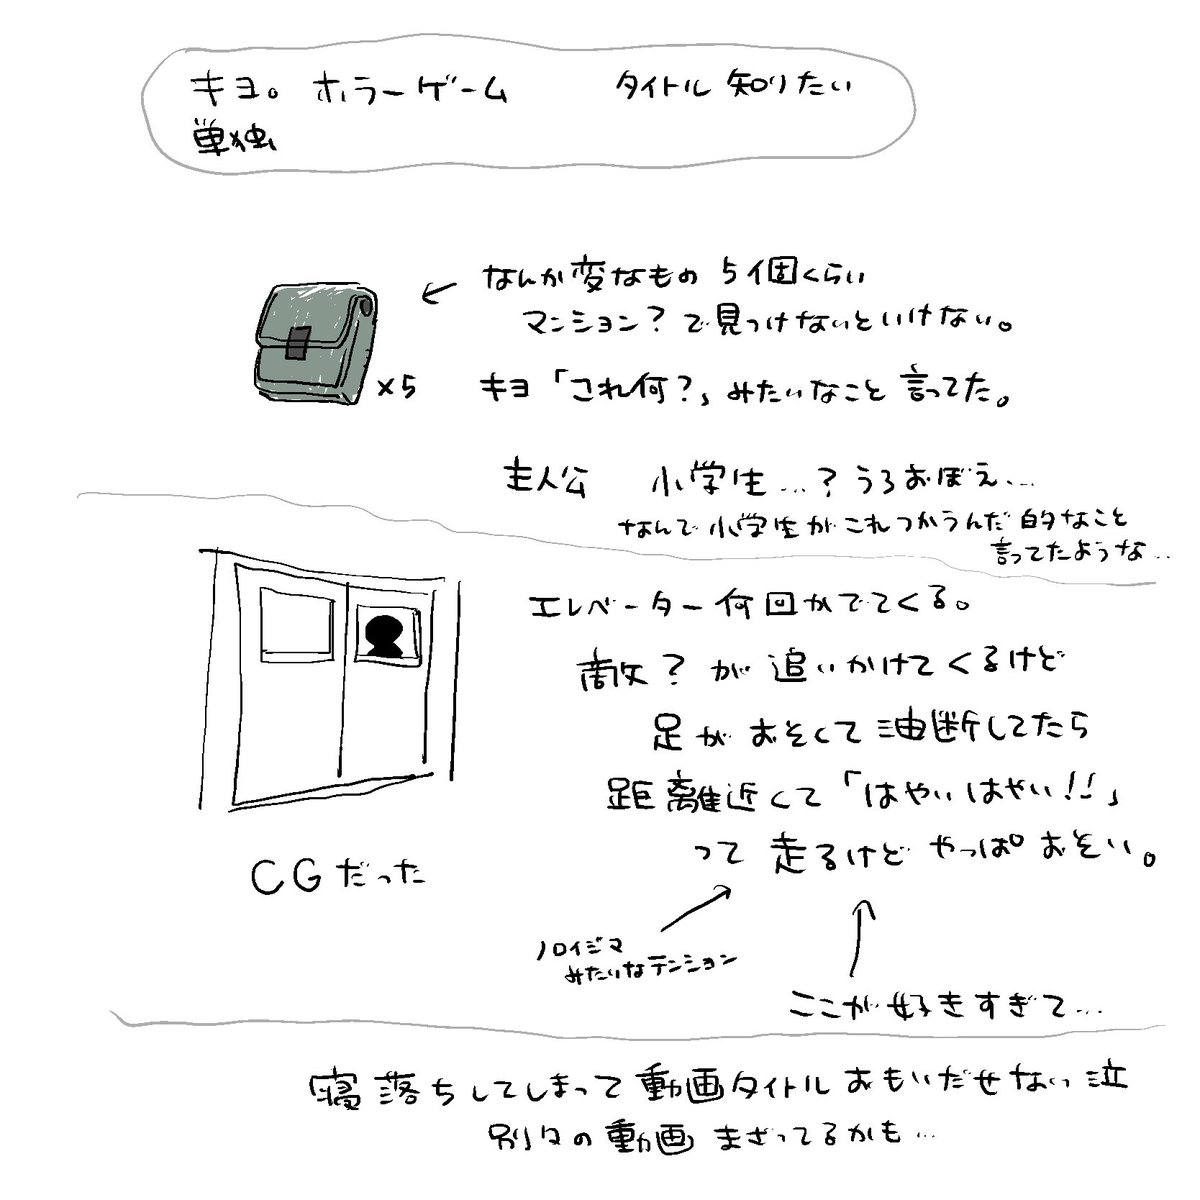 キヨ。ホラーゲーム　タイトル知りたい
単独
なんか変なもの 5個くらい
マンション？で見つけないといけない。
×5
キヨ「これ何？」みたいなこと言ってた。
主人公　小学生…？うろおぼえ…
なんで小学生がこれつかうんだ的なこと
言ってたような…
エレベーター何回かでてくる。
敵？が追いかけてくるけど
足がおそくて油断してたら
距離近くて「はやいはやい!!」
って走るけどやっぱおそい。
CGだった
ノロイジマ
みたいなテンション
ここが好きすぎて…
寝落ちしてしまって動画タイトルおもいだせない泣
別々の動画まざってるかも…